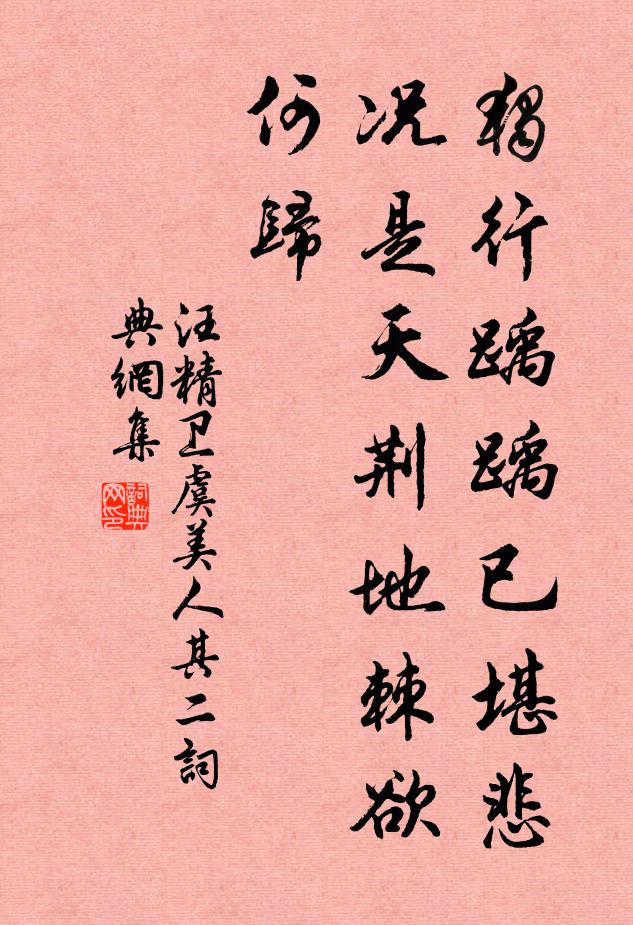 獨行踽踽已堪悲
況是天荊地棘欲
何歸
汪精卫虞美人其二詞
典網集
詞典
网印